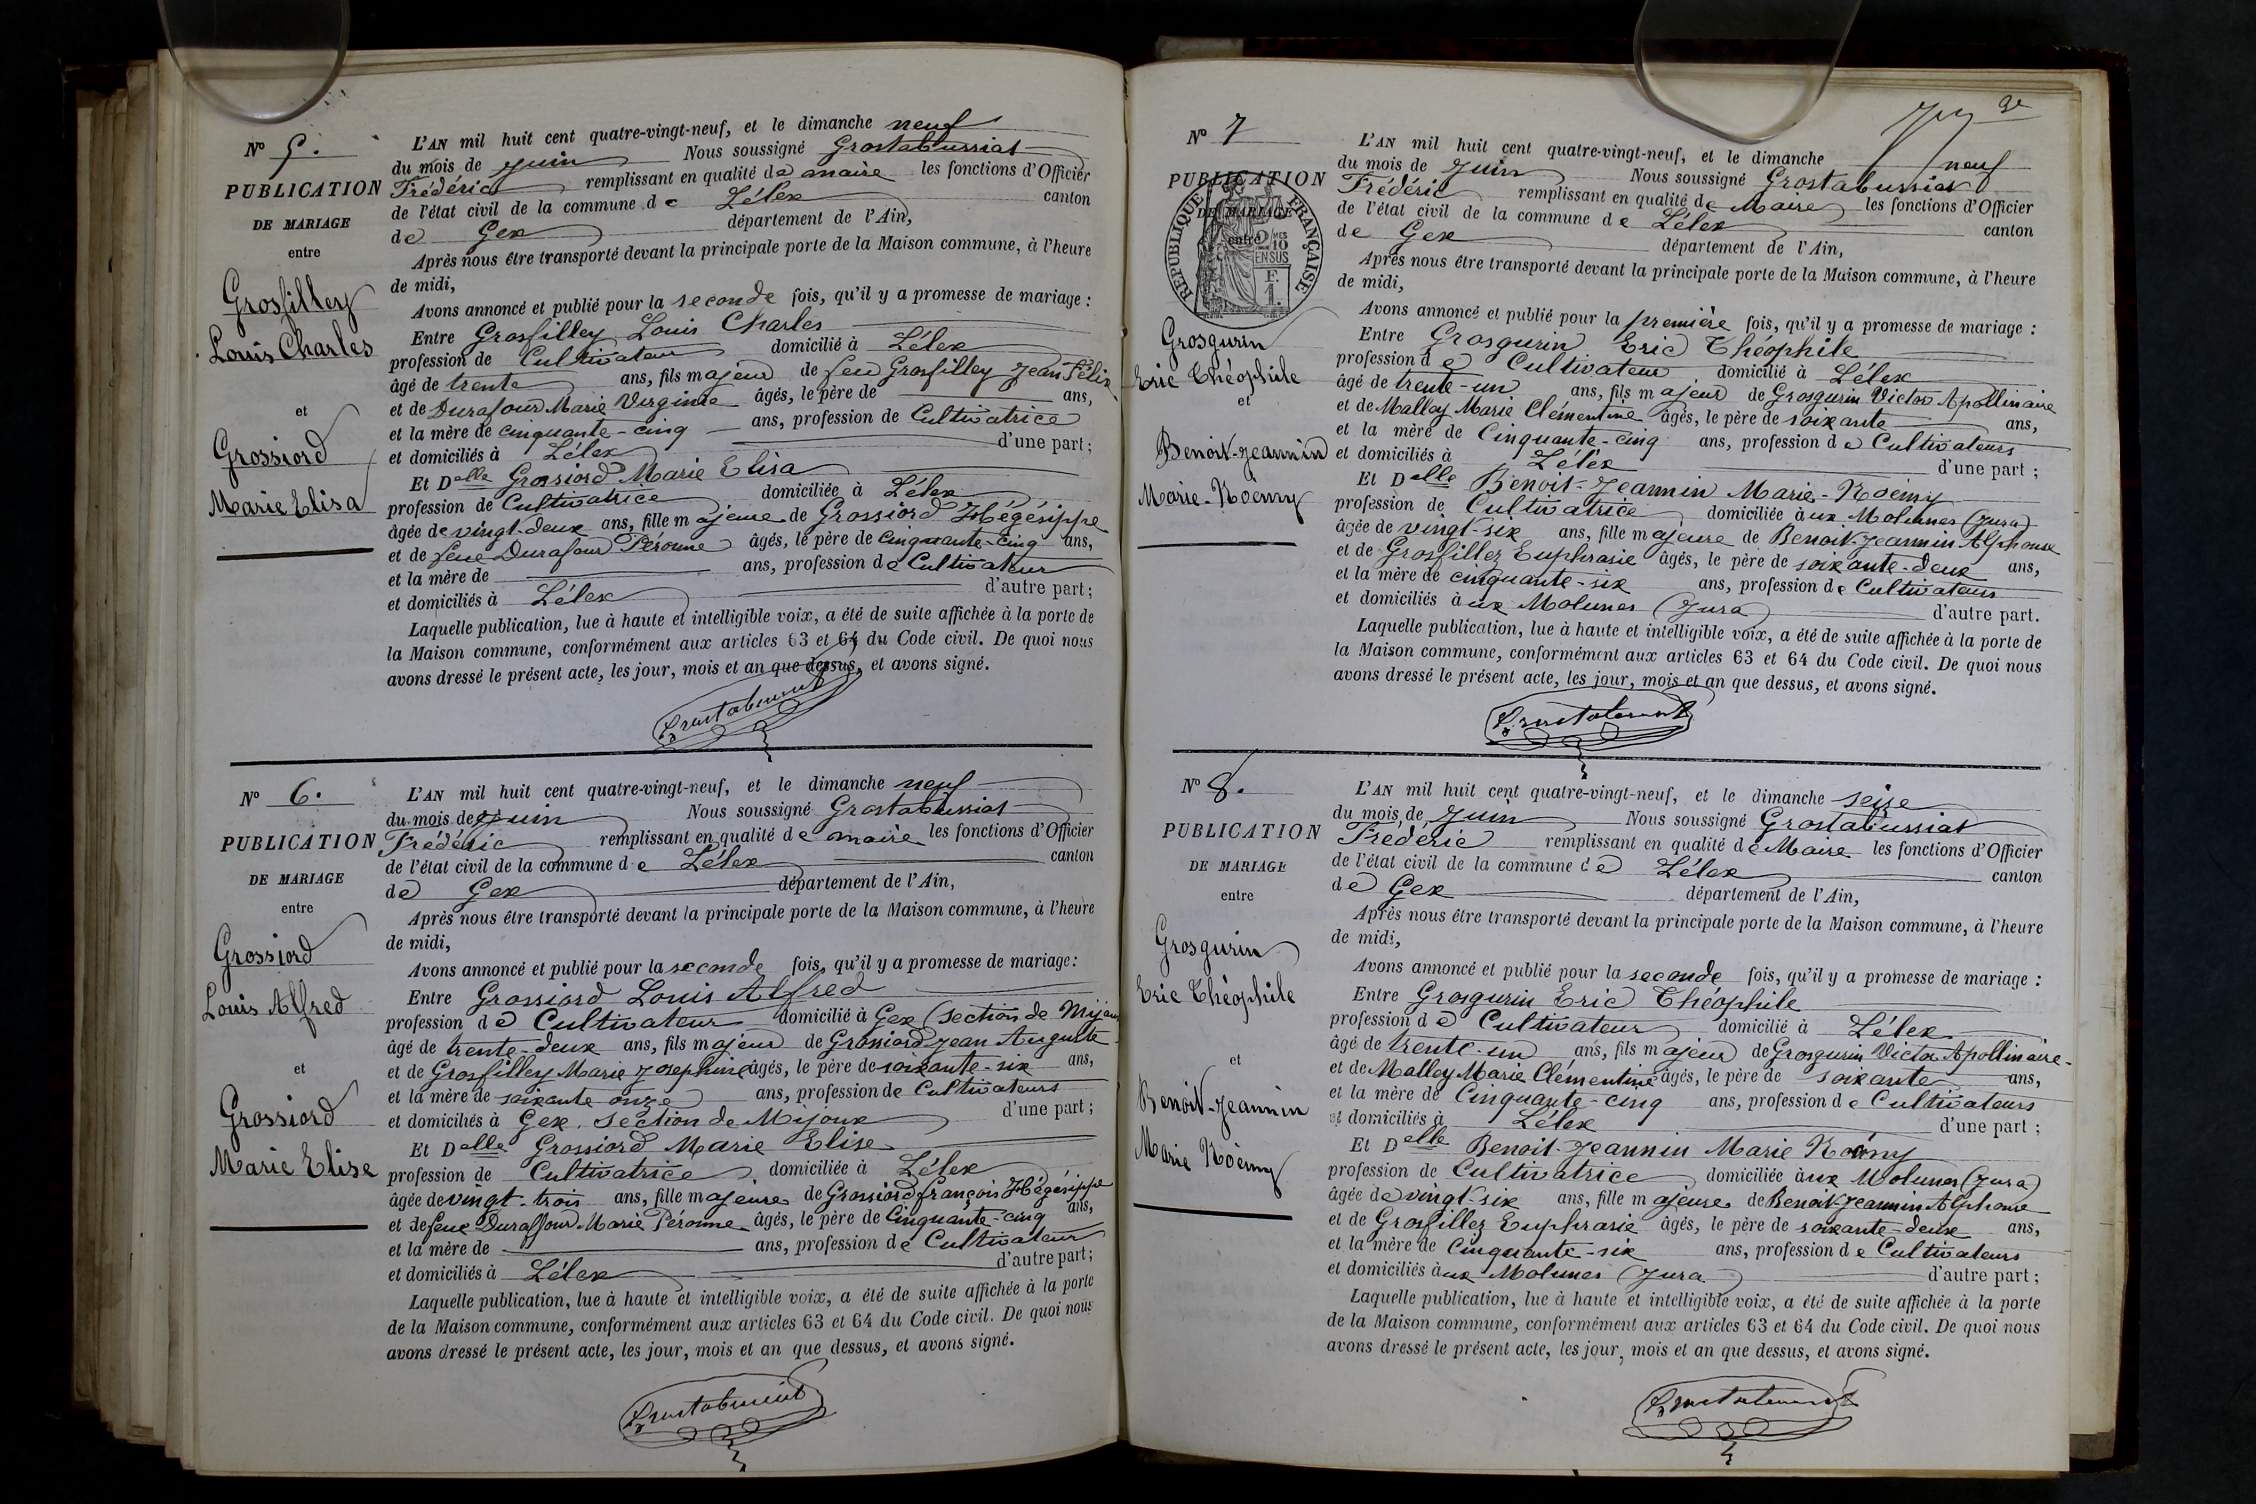 N° 5.
PUBLICATION
DE MARIAGE
entre
Grosfilley
Louis Charles
et
Grossiord
Marie Elisa
L'AN mil huit cent quatre-vingt-neuf, et le dimanche neuf
du mois de Juin Nous soussigné Grostabussiat
Frédéric remplissant en qualité de maire les fonctions d'Officier
de l'état civil de la commune de Lélex canton
de Gex département de l'Ain,
Après nous être transporté devant la principale porte de la Maison commune, à l'heure
de midi,
Avons annoncé et publié pour la seconde fois, qu'il y a promesse de mariage :
Entre Grosfilley Louis Charles
profession de Cultivateur domicilié à Lélex
âgé de trente ans, fils majeur de feu Grosfilley Jean Félix
et de Durafour Marie Virginie âgés, le père de ans,
et la mère de cinquante-cinq ans, profession de Cultivatrice
et domiciliés à Lélex d'une part;
Et Delle Grossiord Marie Elisa
profession de Cultivatrice domiciliée à Lélex
âgée de vingt-deux ans, fille majeure de Grossiord Hégésippe
et de feue Durafour Péronne âgés, le père de cinquante-cinq ans,
et la mère de ans, profession de Cultivateur
et domiciliés à Lélex d'autre part;
Laquelle publication, lue à haute et intelligible voix, a été de suite affichée à la porte de
la Maison commune, conformément aux articles 63 et 64 du Code civil. De quoi nous
avons dressé le présent acte, les jour, mois et an que dessus, et avons signé.
Grostabussiat
N° 6.
PUBLICATION
DE MARIAGE
entre
Grossiord
Louis Alfred
et
Grossiord
Marie Elise
L'AN mil huit cent quatre-vingt-neuf, et le dimanche neuf
du mois de Juin Nous soussigné Grostabussiat
Frédéric remplissant en qualité de maire les fonctions d'Officier
de l'état civil de la commune de Lélex canton
de Gex département de l'Ain,
Après nous être transporté devant la principale porte de la Maison commune, à l'heure
de midi,
Avons annoncé et publié pour la seconde fois, qu'il y a promesse de mariage :
Entre Grossiord Louis Alfred
profession de Cultivateur domicilié à Gex (section de Mijoux
âgé de trente-deux ans, fils majeur de Grossiord Jean Auguste
et de Grosfilley Marie Josephine âgés, le père de soixante-six ans,
et la mère de soixante onze ans, profession de Cultivateurs
et domiciliés à Gex section de Mijoux d'une part;
Et Delle Grossiord Marie Elise
profession de Cultivatrice domiciliée à Lélex
âgée de vingt-trois ans, fille majeure de Grossiord françois Hégésippe
et de feue Duraffour Marie Péronne âgés, le père de Cinquante-cinq ans,
et la mère de ans, profession de Cultivateur
et domiciliés à Lélex d'autre part;
Laquelle publication, lue à haute et intelligible voix, a été de suite affichée à la porte
de la Maison commune, conformément aux articles 63 et 64 du Code civil. De quoi nous
avons dressé le présent acte, les jour, mois et an que dessus, et avons signé.
Grostabussiat
N° 7
PUBLICATION
DE MARIAGE
entre
RÉPUBLIQUE FRANÇAISE
2/10 EN SUS
F.
1.
Grosgurin
Eric Théophile
et
Benoit-Jeannin
Marie-Noémy
L'AN mil huit cent quatre-vingt-neuf, et le dimanche neuf
du mois de Juin Nous soussigné Grostabussiat
Frédéric remplissant en qualité de Maire les fonctions d'Officier
de l'état civil de la commune de Lélex canton
de Gex département de l'Ain,
Après nous être transporté devant la principale porte de la Maison commune, à l'heure
de midi,
Avons annoncé et publié pour la première fois, qu'il y a promesse de mariage :
Entre Grosgurin Eric Théophile
profession de Cultivateur domicilié à Lélex
âgé de trente-un ans, fils majeur de Grosgurin Victor Apollinaire
et de Malley Marie Clémentine âgés, le père de soixante ans,
et la mère de Cinquante-cinq ans, profession de Cultivateurs
et domiciliés à Lélex d'une part ;
Et Delle Benoit-Jeannin Marie-Noémy
profession de Cultivatrice domiciliée aux Molunes (Jura)
âgée de vingt-six ans, fille majeure de Benoit-Jeannin Alphonse
et de Grosfillez Euphrasie âgés, le père de soixante-deux ans,
et la mère de cinquante-six ans, profession de Cultivateurs
et domiciliés aux Molunes (Jura) d'autre part.
Laquelle publication, lue à haute et intelligible voix, a été de suite affichée à la porte de
la Maison commune, conformément aux articles 63 et 64 du Code civil. De quoi nous
avons dressé le présent acte, les jour, mois et an que dessus, et avons signé.
Grostabussiat
N° 8.
PUBLICATION
DE MARIAGE
entre
Grosgurin
Eric Théophile
et
Benoit-Jeannin
Marie Noémy
L'AN mil huit cent quatre-vingt-neuf, et le dimanche seize
du mois de Juin Nous soussigné Grostabussiat
Frédéric remplissant en qualité de Maire les fonctions d'Officier
de l'état civil de la commune de Lélex canton
de Gex département de l'Ain,
Après nous être transporté devant la principale porte de la Maison commune, à l'heure
de midi,
Avons annoncé et publié pour la seconde fois, qu'il y a promesse de mariage :
Entre Grosgurin Eric Théophile
profession de Cultivateur domicilié à Lélex
âgé de trente-un ans, fils majeur de Grosgurin Victor Apollinaire
et de Malley Marie Clémentine âgés, le père de soixante ans,
et la mère de Cinquante-cinq ans, profession de Cultivateurs
et domiciliés à Lélex d'une part ;
Et Delle Benoit-Jeannin Marie Noémy
profession de Cultivatrice domiciliée aux Molunes (Jura)
âgée de vingt-six ans, fille majeure de Benoit Jeannin Alphonse
et de Grosfillez Euphrasie âgés, le père de soixante-deux ans,
et la mère de Cinquante-six ans, profession de Cultivateurs
et domiciliés aux Molunes (Jura) d'autre part ;
Laquelle publication, lue à haute et intelligible voix, a été de suite affichée à la porte
de la Maison commune, conformément aux articles 63 et 64 du Code civil. De quoi nous
avons dressé le présent acte, les jour, mois et an que dessus, et avons signé.
Grostabussiat